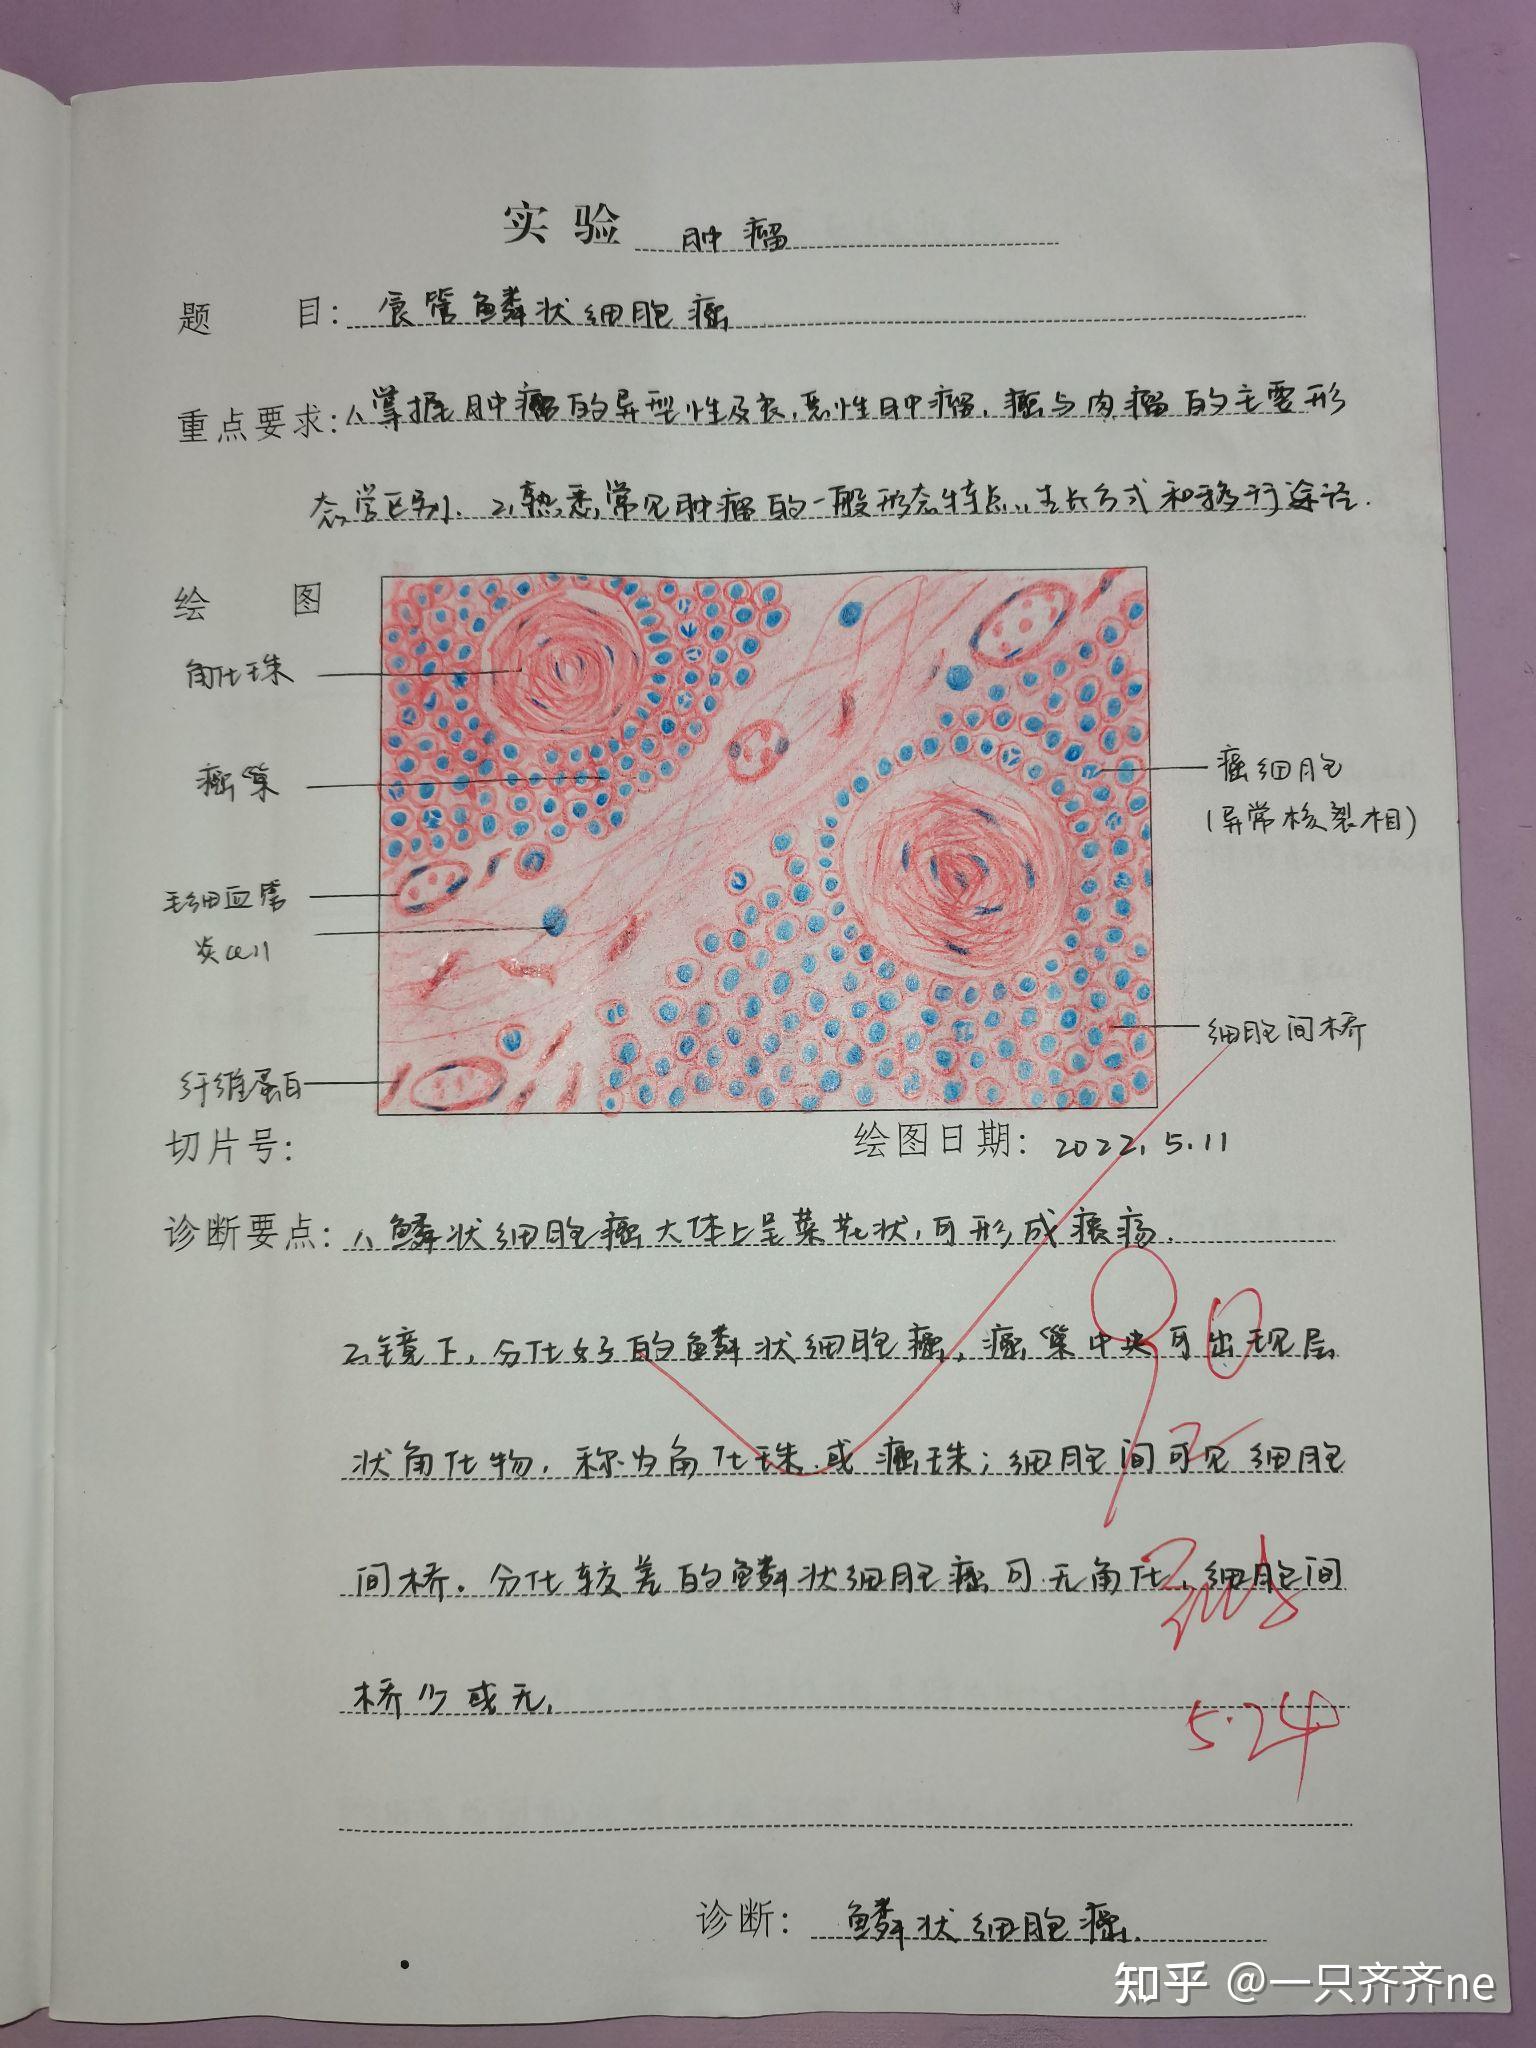 实验 肿瘤
题 目: 食管鳞状细胞癌
重点要求: 1、掌握肿瘤的异型性及良、恶性肿瘤、癌与肉瘤的主要形
态学区别. 2、熟悉常见肿瘤的一般形态特点、生长方式和移行途径.
绘 图
角化珠
癌巢
毛细血管
炎cell
纤维蛋白
癌细胞
(异常核裂相)
细胞间桥
切片号:
绘图日期: 2022.5.11
诊断要点: 1、鳞状细胞癌大体上呈菜花状,可形成溃疡.
2、镜下,分化好的鳞状细胞癌,癌巢中央可出现层
状角化物,称为角化珠或癌珠;细胞间可见细胞
间桥。分化较差的鳞状细胞癌可无角化,细胞间
桥少或无.
90
5.24
诊断: 鳞状细胞癌.
知乎 @一只齐齐ne